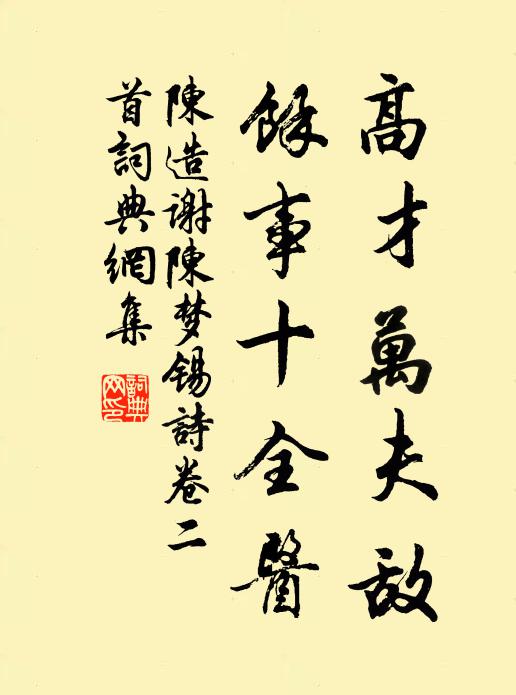 高才萬夫敵
餘事十全醫
陳造謝陳梦锡詩卷二
首詞典網集
詞典
网印